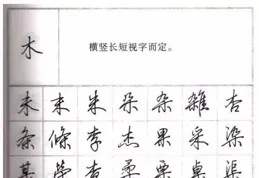 木
横竖长短视字而定。
未 末 朱 朵 杂 雜 杏
条 條 李 杰 果 采 染
某 荣 查 柔 栗 桌 渠